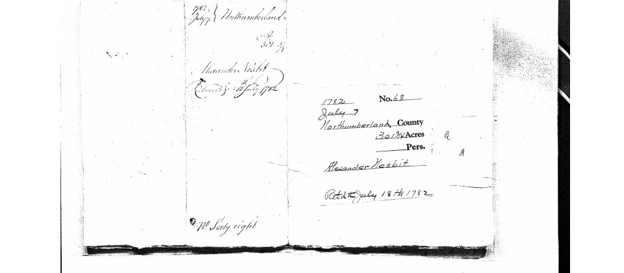 1782
July 7 } Northumberland.
A
301 3/4
Alexander Nesbit
July 1782
No. Sixty eight
1782 No. 68
July 7
Northumberland County
301 3/4 Acres
Pers.
Alexander Nesbit
Retd July 18th 1782